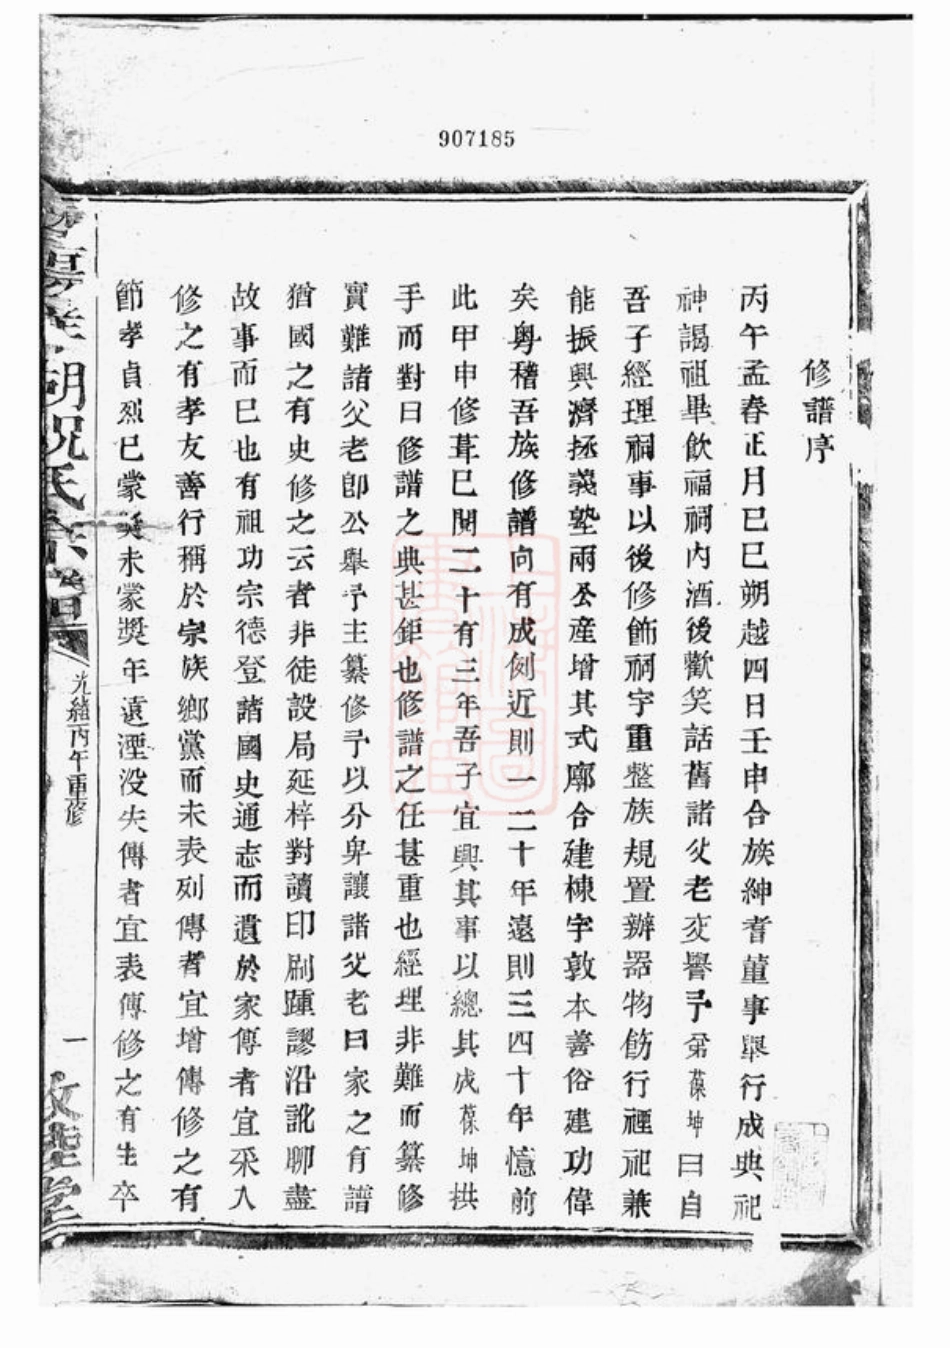 907185
修譜序
丙午孟春正月己巳朔越四日壬申合族紳耆董事舉行成典祀
神謁祖畢飲福祠內酒後歡笑話舊諸父老交譽予弟葆坤曰自
吾子經理祠事以後修飾祠宇重整族規置辦器物飭行禋祀兼
能振興濟拯義塾兩公產增其式廓合建棟宇敦本善俗建功偉
矣粵稽吾族修譜向有成例近則一二十年遠則三四十年憶前
此甲申修葺已閱二十有三年吾子宜興其事以總其成葆坤拱
手而對曰修譜之典甚鉅也修譜之任甚重也經理非難而纂修
實難諸父老卽公舉予主纂修予以分卑讓諸父老曰家之有譜
猶國之有史修之云者非徒設局延梓對讀印刷踵謬沿訛聊盡
故事而已也有祖功宗德登諸國史通志而遺於家傳者宜采入
修之有孝友善行稱於宗族鄉黨而未表列傳者宜增傳修之有
節孝貞烈已蒙旌未蒙獎年遠湮没失傳者宜表傳修之有生卒
湖祝氏宗譜
光緒丙午重修
一